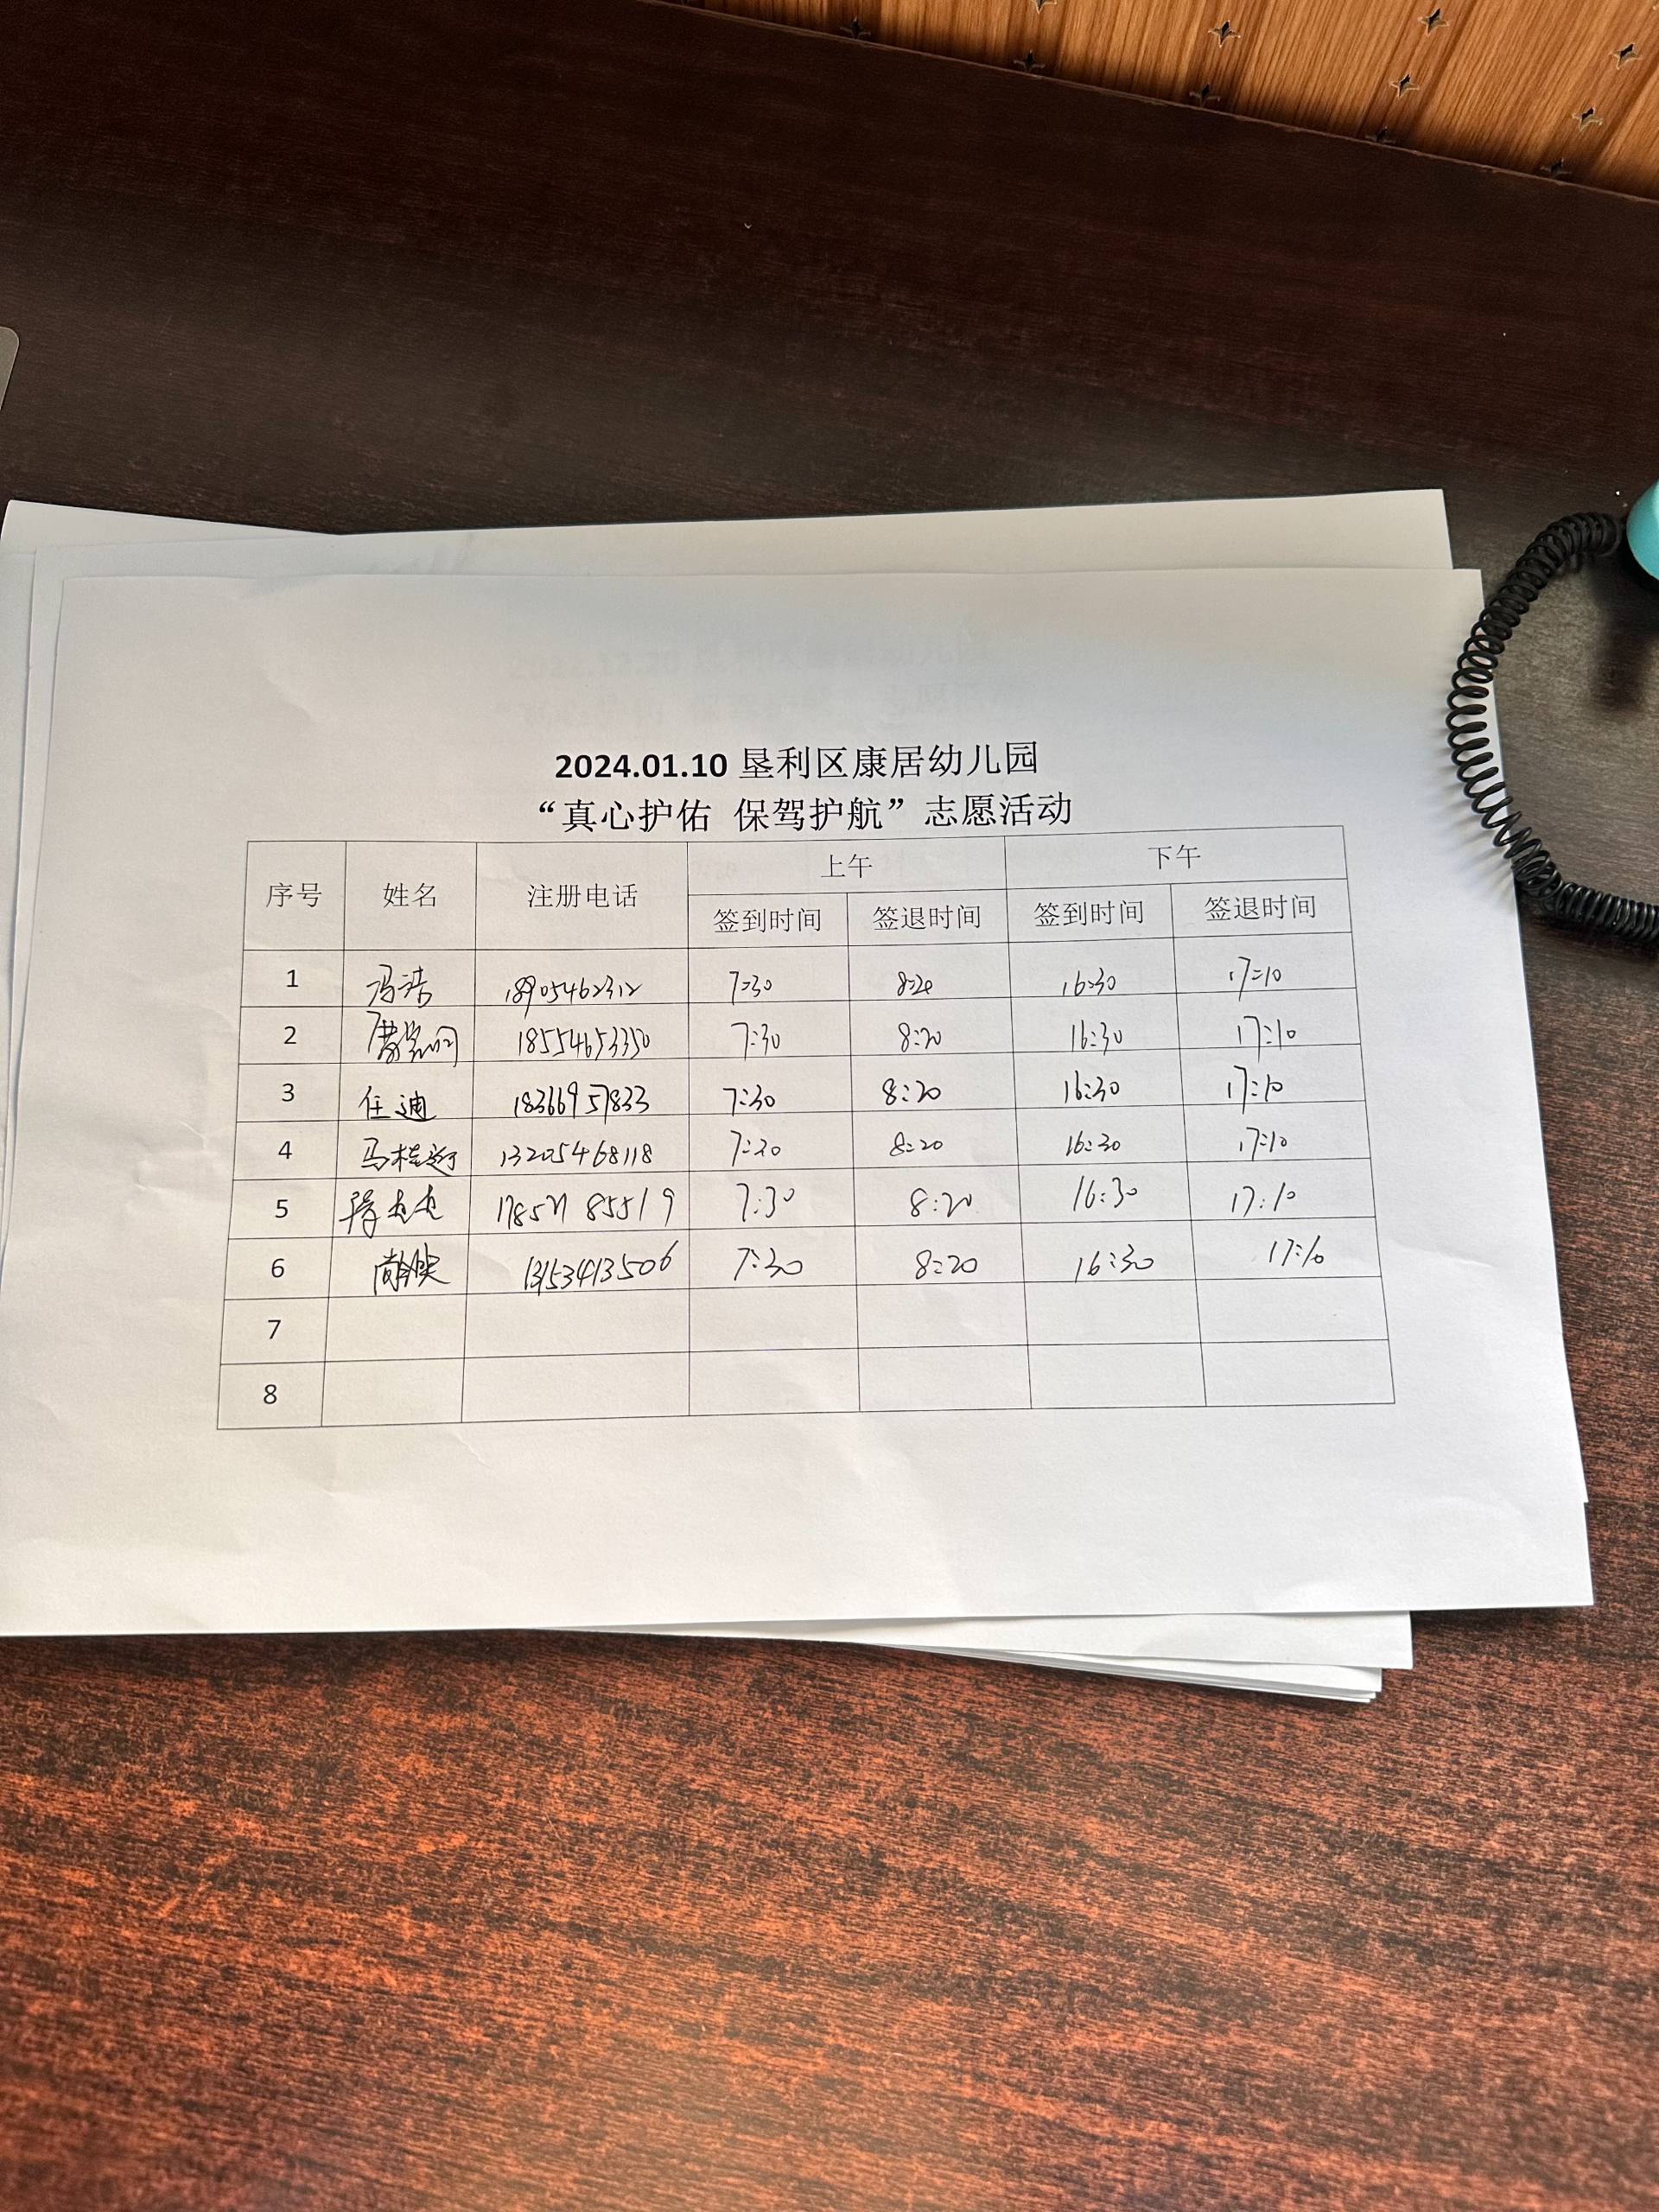 2024.01.10 垦利区康居幼儿园
“真心护佑 保驾护航”志愿活动
序号 姓名 注册电话 上午 下午
签到时间 签退时间 签到时间 签退时间
1 冯洁 18905462312 7:30 8:20 16:30 17:10
2 18554653350 7:30 8:20 16:30 17:10
3 任迪 18366957833 7:30 8:20 16:30 17:10
4 马桂 13205468118 7:30 8:20 16:30 17:10
5 17852185519 7:30 8:20 16:30 17:10
6 13153413506 7:30 8:20 16:30 17:10
7
8